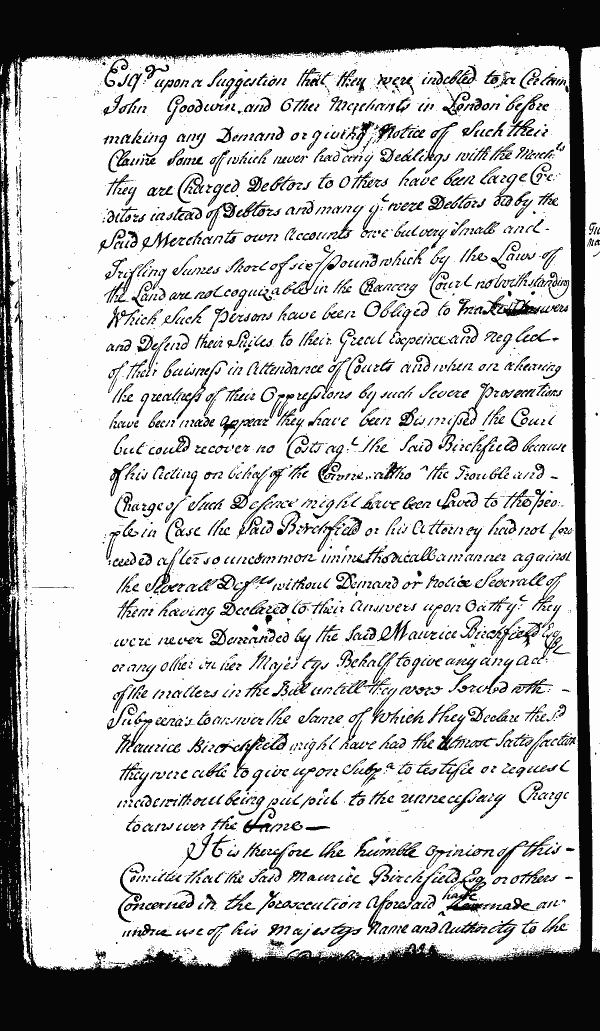 Esqr. upon a Suggestion that they were indebted to a Certain
John Goodwin and Other Merchants in London before
making any Demand or giving Notice of Such their
Claime Some of which never had any Dealings with the Merchts
they are Charged Debtors to Others have been large Cre-
ditors instead of Debtors and many yt were Debtors did by the
Said Merchants own Accounts owe but very Small and-
Trifling Sumes Short of six pound which by the Laws of
the Land are not cognizable in the Chancery Court notwithstanding
Which Such Persons have been Obliged to Answers
and Defend their Suites to their Great Expence and neglect-
of their buisness in Attendance of Courts and when on a hearing
the greatness of their Oppressions by such Severe Prosecutions
have been made appear they have been Dismissed the Court
but could recover no Costs agt. the Said Birchfield because
of his Acting on behalf of the Crowne altho' the Trouble and-
Charge of Such Defence might have been Saved to the Peo-
ple in Case the Said Birchfield or his Attorney had not pro
ceeded after so uncommon immethodicall a manner against
the Severall Defts without Demand or Notice Severall of
them having Declared to their Answers upon Oath yt. they
were never Demanded by the Said Maurice Birchfield Esqr
or any other in her Majestys Behalf to give any any acct
of the matters in the Bill untill they were Served with-
Subpoena's to answer the Same of Which they Declare the Sd
Maurice Birchfield might have had the Utmost Satisfaction
they were able to give upon Subpa. to testifie or request
made without being put put to the unnecessary Charge
to answer the Same-
It is therefore the humble Opinion of this-
Comittee that the Said Maurice Birchfield Esq or others-
Concerned in the Prosecution Aforesaid have made an
undue use of his Majestys Name and Authority to the